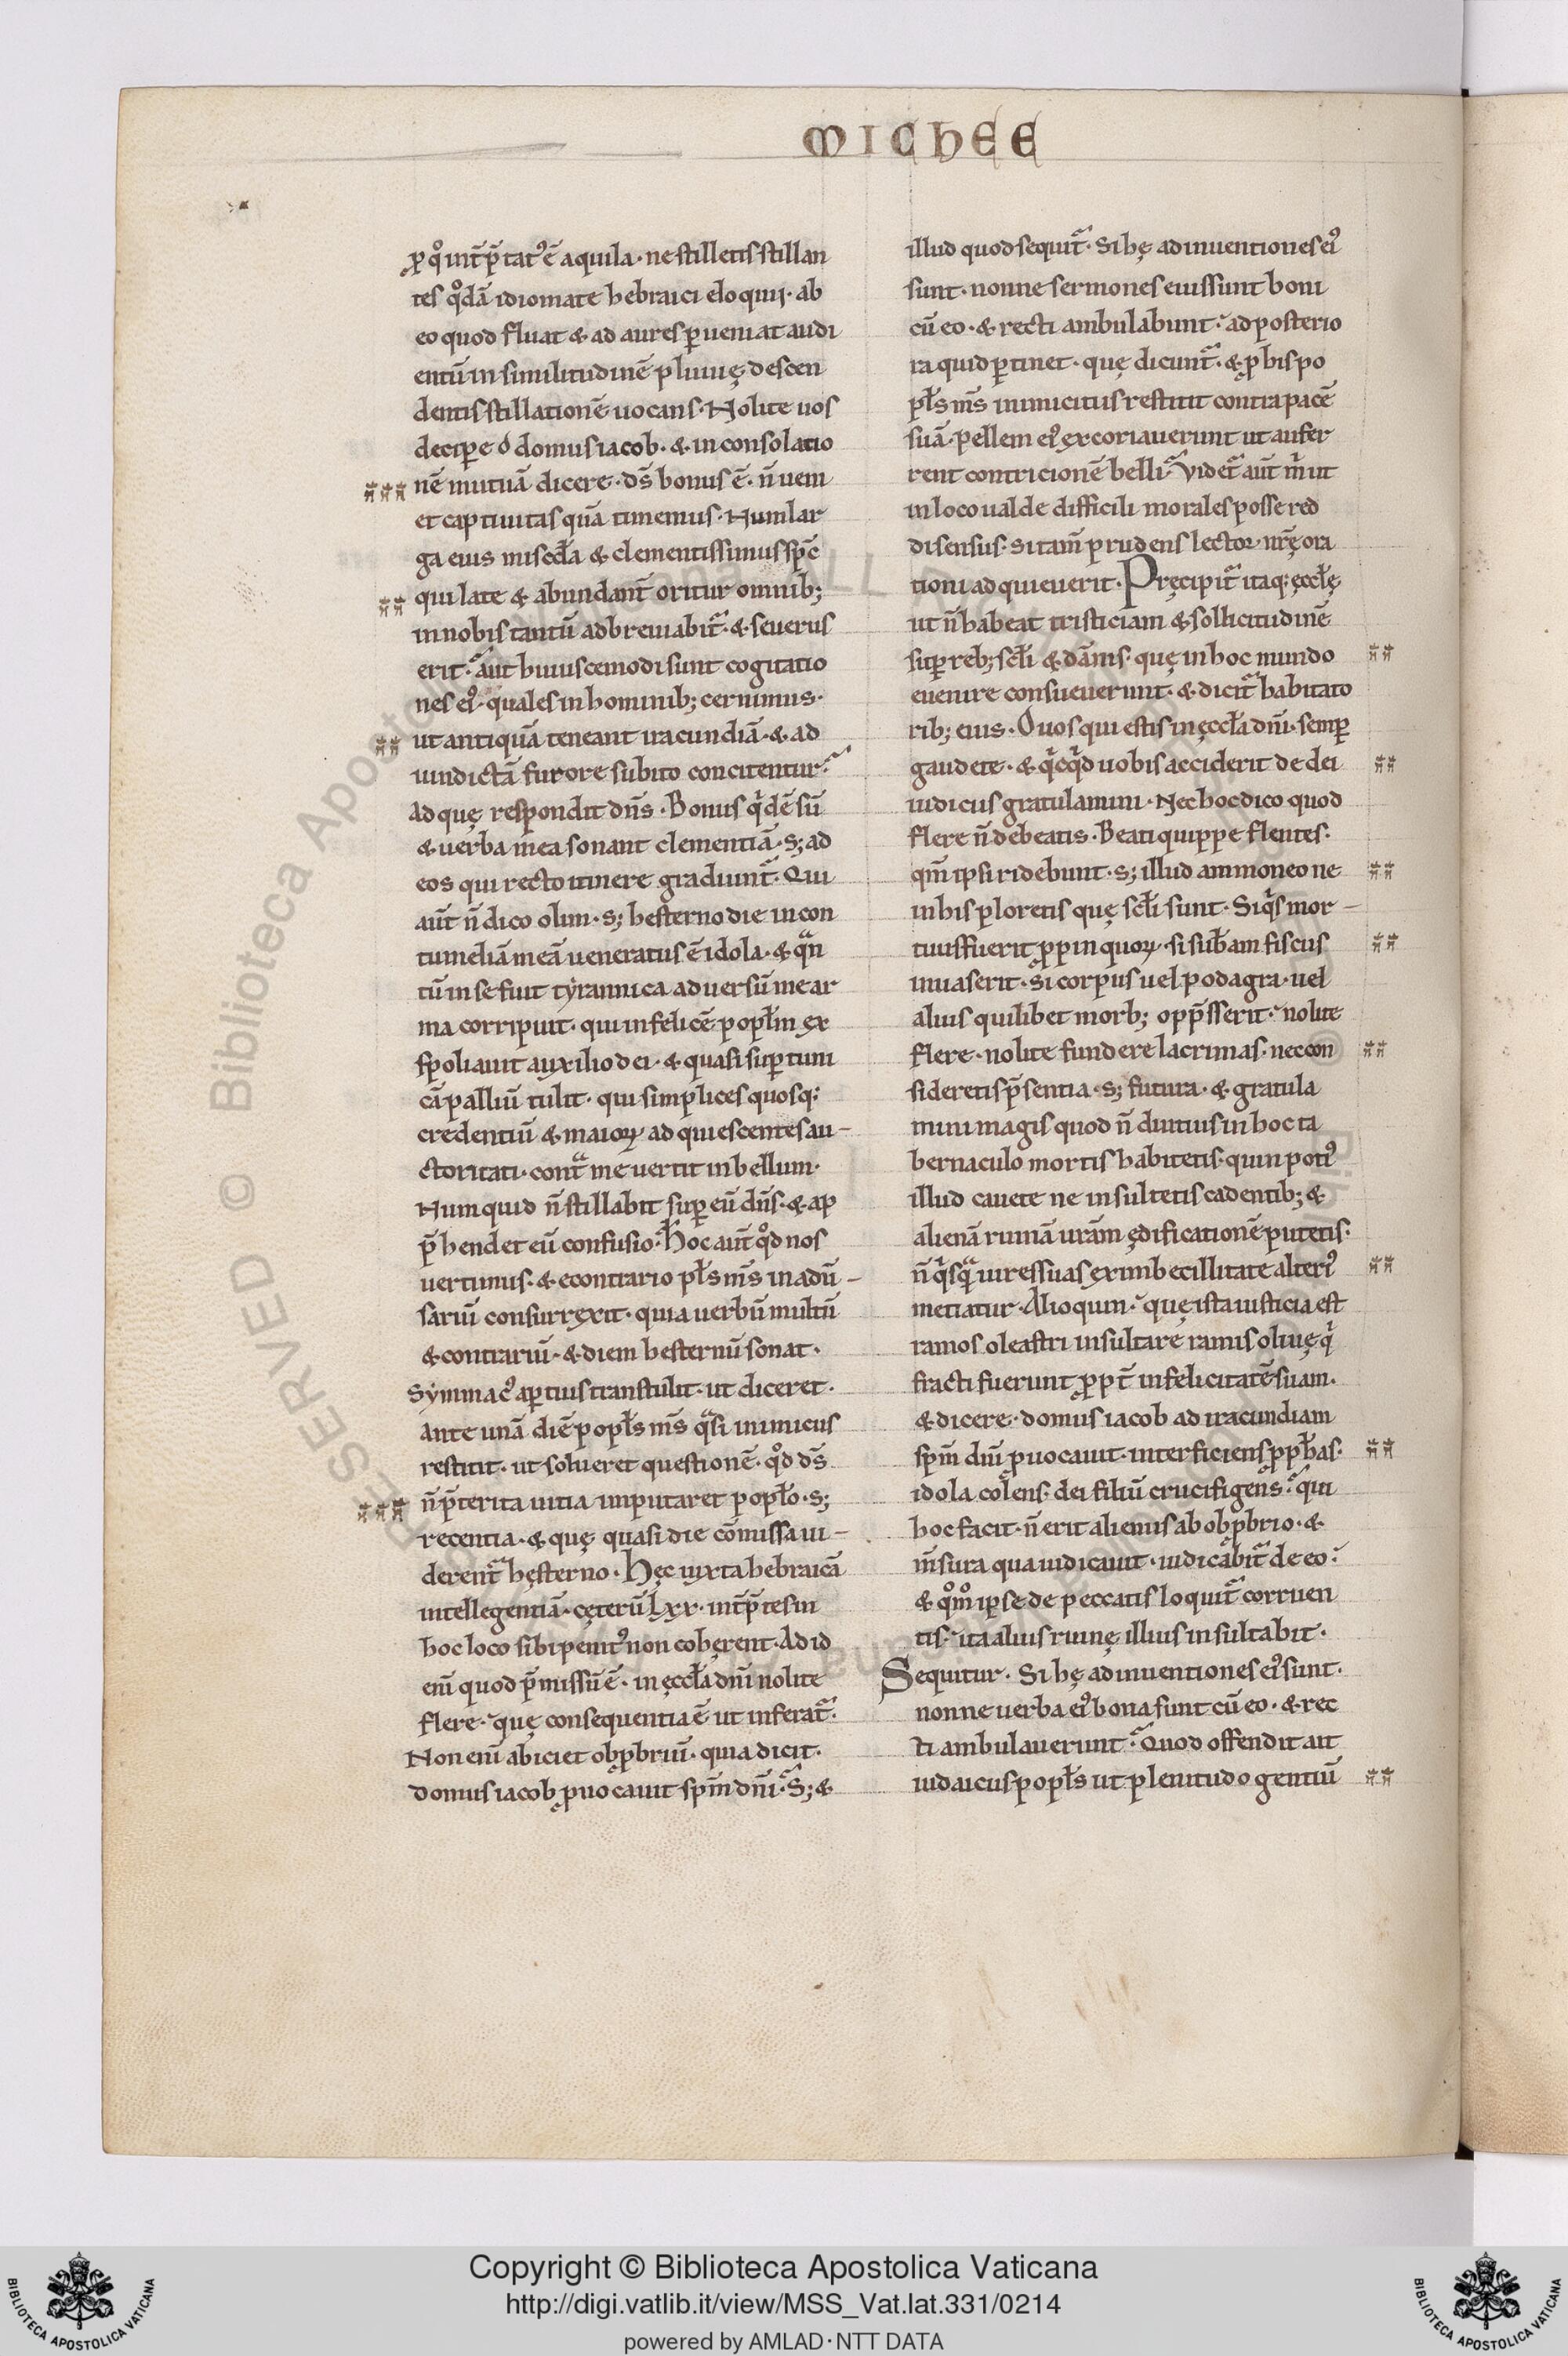 MICHEE
ꝓ qͦ int̄p̄tatꝰ ē aquila · ne stilletis stillan
tes qͦdā idiomate hebraici eloquij · ab
eo quod fluat & ad aures ꝑueniat audi
entū in similitudinē pluuię descen
dentis stillationē uocans · Nolite uos
decipe ó domus iacob · & in consolatio
nē mutuā dicere · ds̄ bonus ē · n̄ ueni
et captiuitas quā timemus · Num lar
ga eius miscd̄ia & clementissimus sp̄c
qui late & abundant̄ oritur omnib;
in nobis tantū adbreuiabit̄ · & seuerus
erit · aut huiuscemodi sunt cogitatio
nes eiꝰ quales in hominib; cernimus ·
ut antiquā teneant iracundiā · & ad
uindictā furore subito concitentur ·
Ad quę respondit dn̄s · Bonus qͥdē sū
& uerba mea sonant clementiā · s; ad
eos qui recto itinere gradiunt̄ · Qui
aut̄ n̄ dico olim · s; hesterno die in con
tumeliā meā ueneratus ē idola · & qͣn
tū in se fuit tyrannica aduersū me ar
ma corripuit · qui infelicē popl̄m ex
spoliauit auxilio dei · & quasi suꝑ tuni
cā palliū tulit · qui simplices quosq;
credentiū & maioꝝ adquiescentes au-
ctoritati · contͣ me uertit in bellum ·
Numquid n̄ stillabit suꝑ eū dn̄s · & ap
p̄hendet eū confusio · Hoc aut̄ qͦd nos
uertimus · & econtrario pl̄s ms̄ in adū-
sariū consurrexit · quia uerbū multū
& contrariū · & diem hesternū sonat ·
Symmacꝰ aꝑtius transtulit · ut diceret ·
Ante unā diē popl̄s ms̄ qͣsi inimicus
restitit · ut solueret questionē · qͦd ds̄
n̄ p̄terita uitia imputaret popl̄o · s;
recentia · & quę quasi die cōmissa ui-
derent̄ hęsterno · Hęc iuxta hebraicā
intellegentiā · cęterū Lxx · int̄p̄tes in
hoc loco sibi penitꝰ non cohęrent · Ad id
eni quod p̄missū ē · in ęccl̄a dn̄i nolite
flere · quę consequentia ē ut inferat̄ ·
Non eni abiciet obꝓbriū · quia dicit ·
domus iacob ꝓuocauit spm̄ dn̄i · S; &
illud quod sequit̄ · Si hę adinuentiones eiꝰ
sunt · nonne sermones eius sunt boni
cū eo · & recti ambulabunt · ad posterio
ra quid ꝑtinet · quę dicunt̄ · & ꝓ his po
pl̄s ms̄ inimicitiis restitit contra pacē
suā · pellem eiꝰ excoriauerunt ut aufer
rent contricionē belli · Videt̄ aut̄ m̄ ut
in loco ualde difficili morales posse red
di sensus · si tam̄ prudens lector nr̄ę ora
tioni adquieuerit · Pręcipit̄ itaq; ęccl̄ę
ut n̄ habeat tristiciam & sollicitudinē
suꝑ reb; scl̄i & dāmis · quę in hoc mundo
euenire consueuerunt · & dicit̄ habitato
rib; eius · O uos qui estis in ęccl̄a dn̄i · semꝑ
gaudete · & qͥcqͥd uobis acciderit de dei
iudiciis gratulamini · Nec hoc dico quod
flere n̄ debeatis · Beati quippe flentes ·
qm̄ ipsi ridebunt · s; illud ammoneo ne
in his ploretis quę scl̄i sunt · Siqͥs mor-
tuus fuerit ꝓpinquoꝝ · si subl̄am fiscus
inuaserit · Si corpus uel podagra · uel
alius quilibet morb; opp̄sserit · nolite
flere · nolite fundere lacrimas · nec con
sideretis p̄sentia · s; futura · & gratula
mini magis quod n̄ diutius in hoc ta
bernaculo mortis habitetis · quin potiꝰ
illud cauete ne insultetis cadentib; &
alienā ruinā urām ędificationē putetis ·
n̄ qͥsqͣ uires suas ex imbecillitate alteriꝰ
metiatur · Alioquin · quę ista iusticia est
ramos oleastri insultare ramis oliuę qͥ
fracti fuerunt ꝓpt̄ infelicitatē suam ·
& dicere · domus iacob ad iracundiam
spm̄ dni ꝓuocauit · interficiens ꝓph̄as ·
idola colens · dei filiū crucifigens · qui
hoc facit · n̄ erit alienus ab obꝓbrio · &
m̄sura qua iudicauit · iudicabit̄ de eo ·
& qͦmͦ ipse de peccatis loquit̄ corruen
tis · ita alius ruinę illius insultabit ·
Sequitur · Si hę adinuentiones eiꝰ sunt ·
nonne uerba eiꝰ bona sunt cū eo · & rec
ti ambulauerunt · Quod offendit ait
iudaicus popl̄s ut plenitudo gentiū
Copyright © Biblioteca Apostolica Vaticana
http://digi.vatlib.it/view/MSS_Vat.lat.331/0214
powered by AMLAD·NTT DATA
BIBLIOTECA APOSTOLICA VATICANA
BIBLIOTECA APOSTOLICA VATICANA